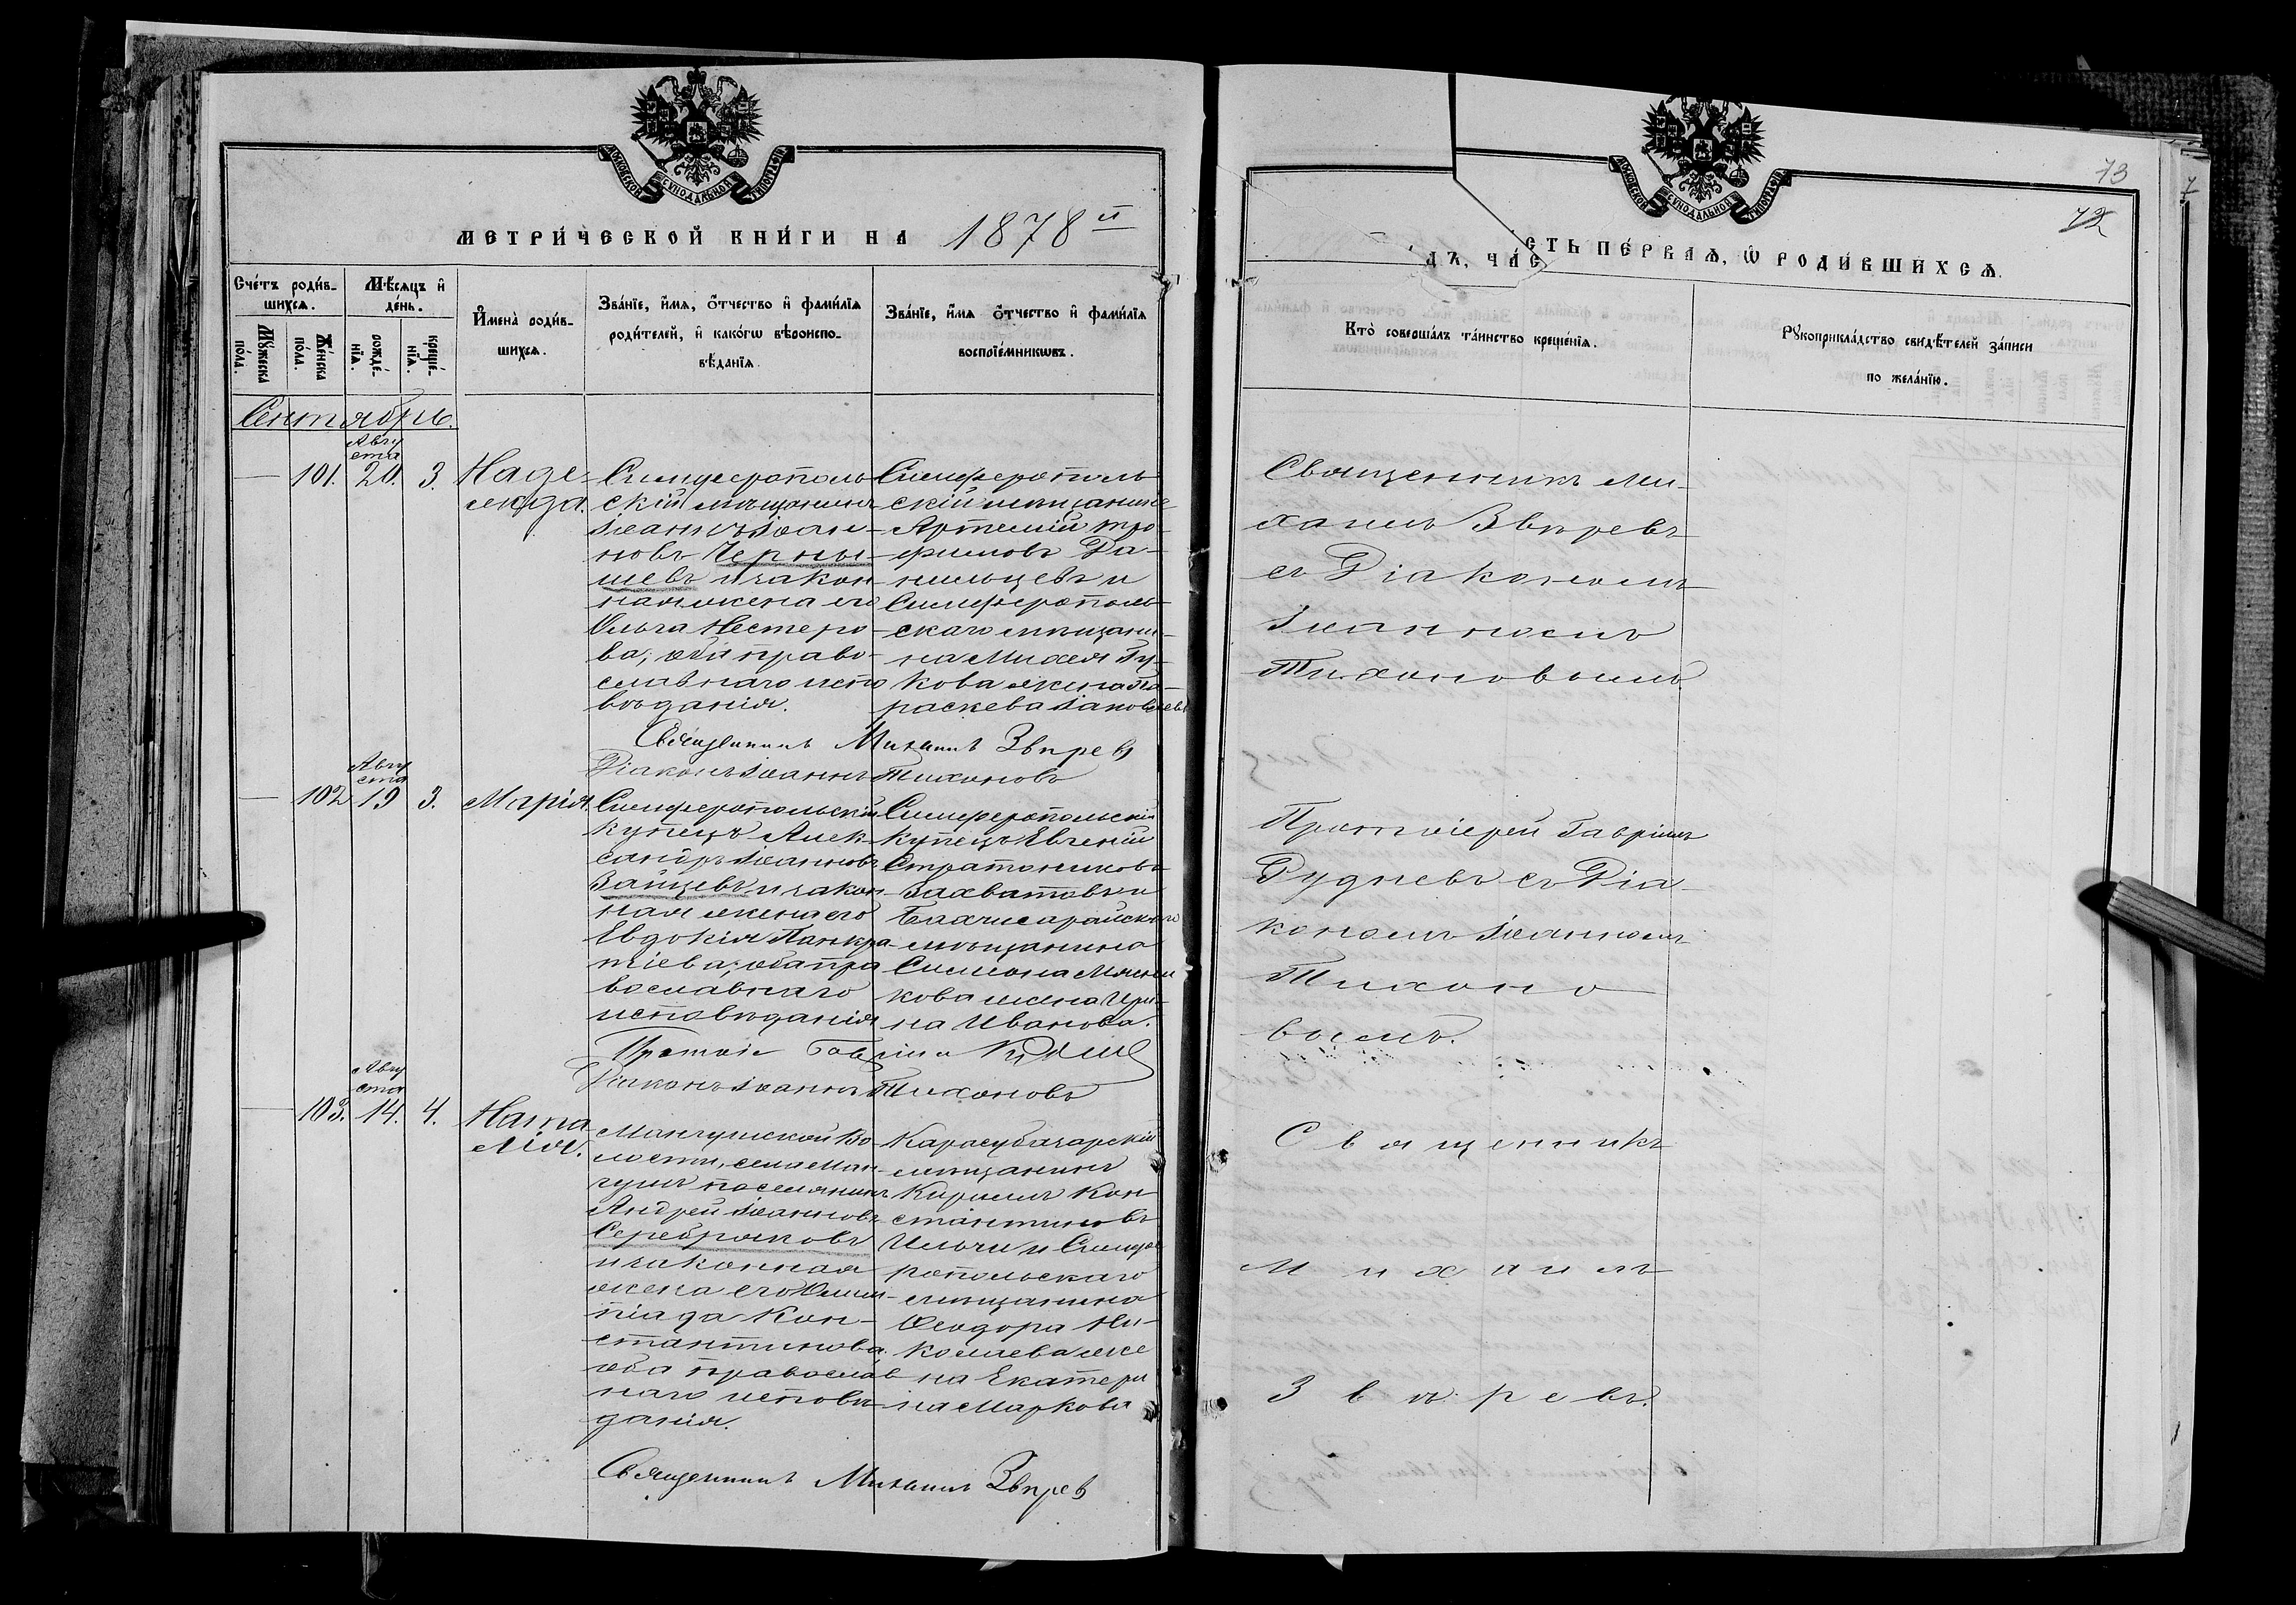 МОСКОВСКОЙ СѴНОДАЛЬНОЙ ТИПОГРАФІИ
МЕТРИ́ЧЕСКОЙ КНИ́ГИ НА 1878й
Сче́тъ роди́в-
шихсѧ.
Мѣ́сѧцъ и҆
де́нь.
Му́жеска
по́ла.
Же́нска
по́ла.
рожде́-
нїѧ.
креще́-
нїѧ.
И҆мена̀ роди́в-
шихсѧ.
Зва́нїе, и҆́мѧ, ѻ҆́тчество и҆ фами́лїѧ
роди́телей, и҆ како́гѡ вѣроиспо-
вѣ́данїѧ.
Зва́нїе, и҆́мѧ ѻ҆́тчество и҆ фами́лїѧ
воспрїе́мникѡвъ.
Сентябрь.
101.
Авгу
ста
20.
3.
Наде-
жда.
Симферополь-
скій мѣщанинъ
Іоаннъ Іоан-
новъ Черны-
шевъ и закон-
ная жена его
Ольга Нестеро-
ва, оба право-
славнаго испо
вѣданія.
Симферополь
скій мѣщанинъ
Артемій Тро-
фимовъ Да-
нильцевъ и
Симферополь-
скаго мѣщани-
на Михея
кова жена Па-
раскева Іаковлева
Священникъ Михаилъ Звѣрев
Діаконъ Іоаннъ Тихоновъ
102
Авгу
ста
19
3.
Марія.
Симферопольскій
купецъ Алек-
сандръ Іоанновъ
Зайцевъ и закон
ная жена его
Евдокія Панкра-
тіева, оба пра
вославнаго
исповѣданія
Симферопольскій
купецъ Евгеній
Стратониковъ
Захватовъ и
Бахчисарайскаго
мѣщанина
Симеона Мясни
кова жена Ири-
на Иванова.
Протоіе Гавріилъ Руднев
Діаконъ Іоаннъ Тихоновъ
103.
Авгу
ста
14.
4.
Ната
лія.
Мангушской во-
лости, села Ман-
гушъ поселянинъ
Андрей Іоанновъ
Серебряковъ
и законная
жена его Олим-
піада Кон-
стантинова,
оба православ
наго исповѣ-
данія.
Карасубазарскій
мѣщанинъ
Кириллъ Кон
стантиновъ
Ильчи и Симфе
ропольскаго
мѣщанина
Ѳеодора Ни-
колаева же
на Екатери
на Маркова
Священникъ Михаилъ Звѣрев
МОСКОВСКОЙ СѴНОДАЛЬНОЙ ТИПОГРАФІИ
73
72
ДЪ, ЧА́СТЬ ПЕ́РВАѦ, Ѡ҆ РОДИ́ВШИХСѦ.
Кто̀ соверша́лъ та́инство креще́нїѧ.
Рꙋкоприкла́дство свидѣ́телей за́писи
по жела́нїю.
Священникъ Ми-
хаилъ Звѣревъ
съ Діакономъ
Іоанномъ
Тихоновымъ
Протоіерей Гавріилъ
Рудневъ съ Діа-
кономъ Іоанномъ
Тихоно-
вымъ.
Священникъ
Михаилъ
Звѣревъ.